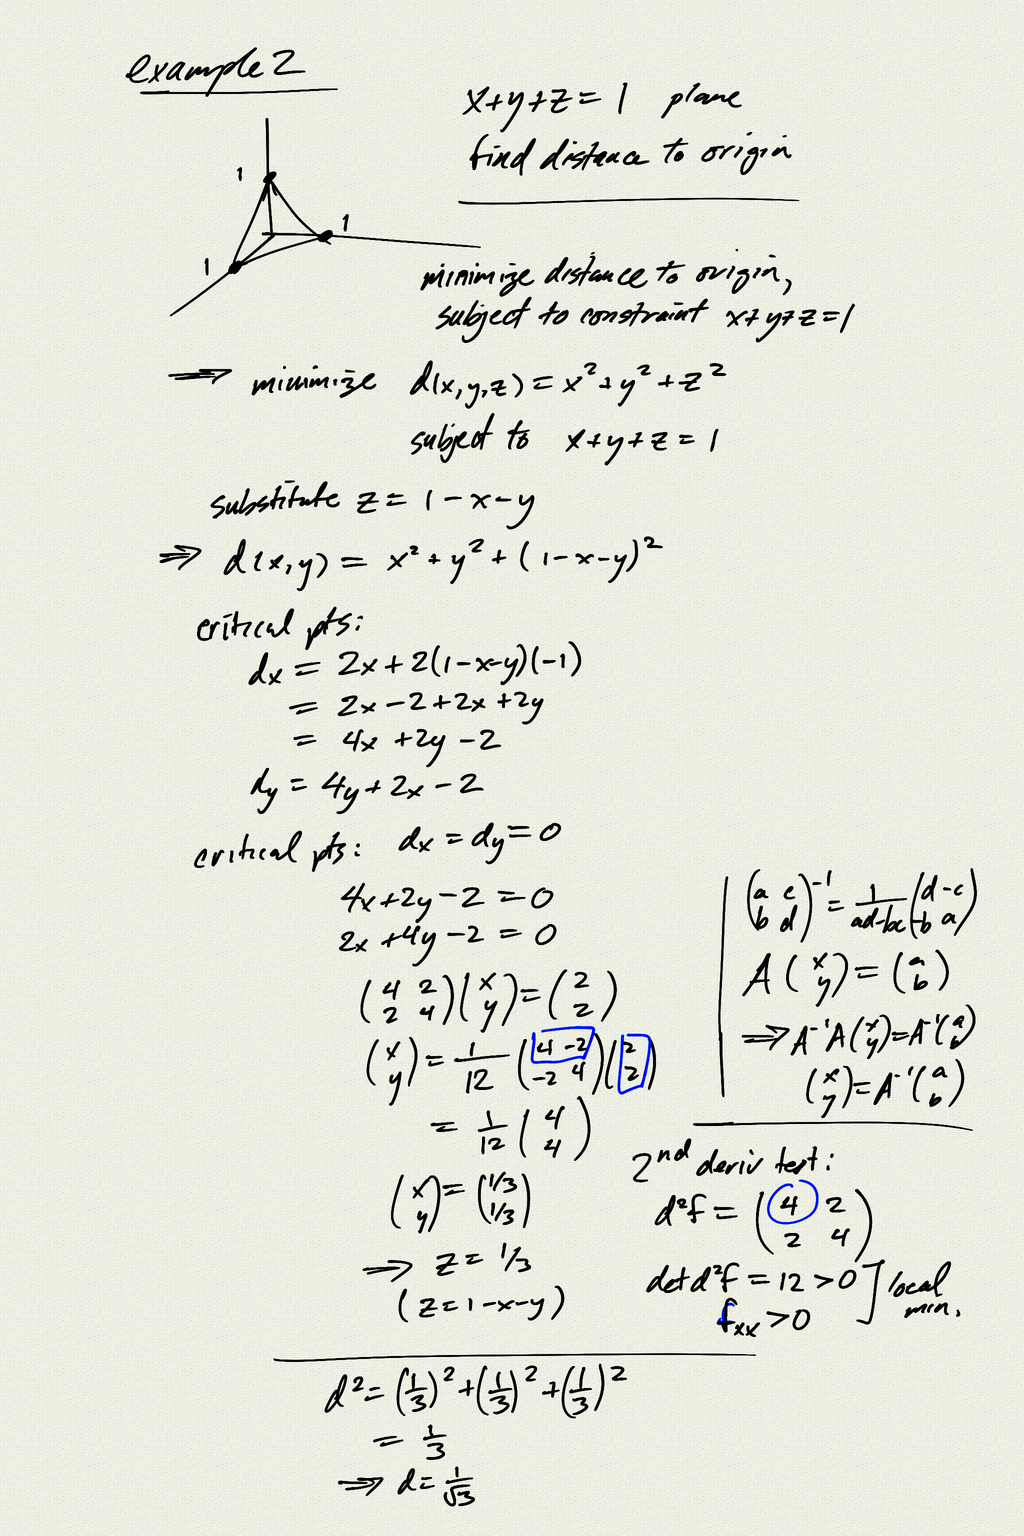 example 2
x+y+z = 1 plane
find distance to origin
1
1
1
minimize distance to origin,
subject to constraint x+y+z=1
⇒ minimize d(x,y,z) = x² + y² + z²
subject to x+y+z = 1
substitute z = 1-x-y
⇒ d(x,y) = x² + y² + (1-x-y)²
critical pts:
dx = 2x + 2(1-x-y)(-1)
= 2x - 2 + 2x + 2y
= 4x + 2y - 2
dy = 4y + 2x - 2
critical pts: dx = dy = 0
4x+2y-2 = 0
2x+4y-2 = 0
(4 2
2 4)(x
y) = (2
2)
(x
y) = 1/12 (4 -2
-2 4)(2
2)
= 1/12 (4
4)
(x
y) = (1/3
1/3)
⇒ z = 1/3
(z = 1-x-y)
(a c
b d)⁻¹ = 1/ad-bc (d -c
-b a)
A (x
y) = (a
b)
⇒ A⁻¹A(x
y) = A⁻¹(a
b)
(x
y) = A⁻¹(a
b)
2nd deriv test:
d²f = (4 2
2 4)
det d²f = 12 > 0
fxx > 0
] local
min.
d² = (1/3)² + (1/3)² + (1/3)²
= 1/3
⇒ d = 1/√3